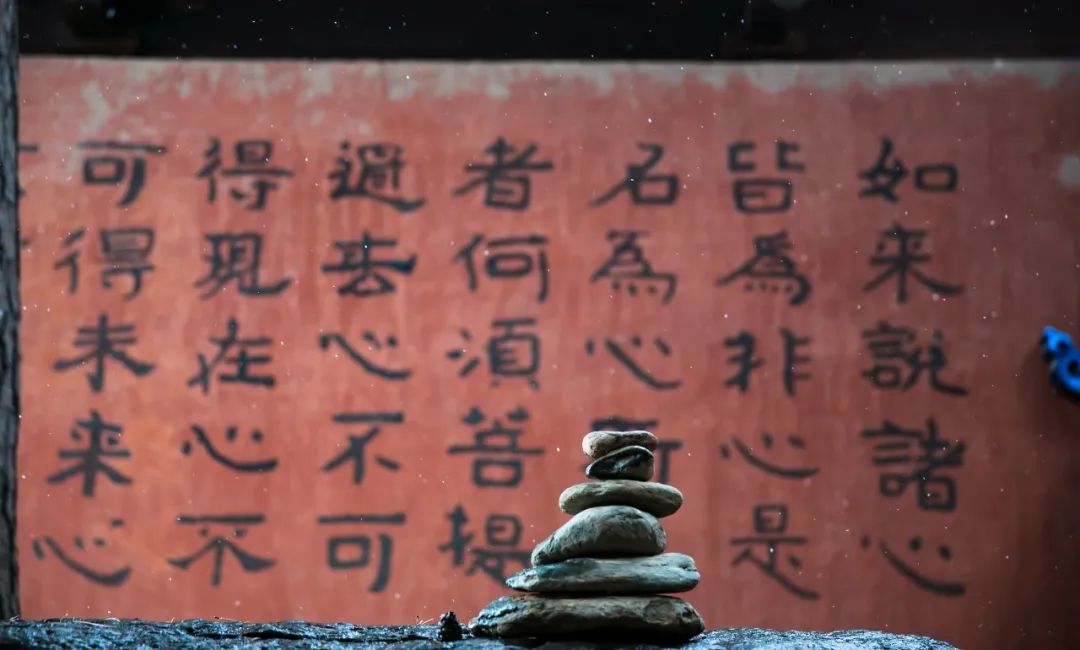 如来說諸心
皆為非心是
名為心所
者何須菩提
過去心不可
得現在心不
可得未来心